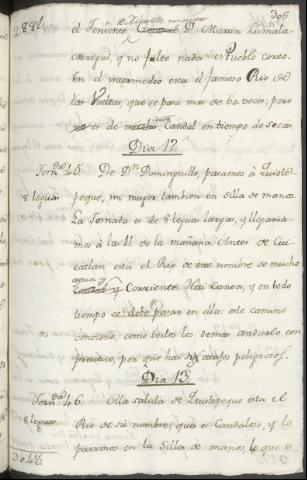 306
288½
Alcalde mayor
el Teniente General D. Martin Zumala-
carregui, y no falto nada: es Pueblo corto.
En el intermedio está el famoso Rio de
las Vueltas, que se pasa mas de 60. veces; pero
es de mucho Caudal en tiempo de secas.
Dia 12.
Jorn.da 45. De D.n Dominguillo, pasamos à Quiote-
8 leguas peque, mi muger tambien en silla de manos.
La Jornada es de 8 leguas largas, y llegaria-
mos à las 11 de la mañana. Antes de Cui-
catlan está el Rio de este nombre de mucha
agua y
Caudal y Corriente. Hai Canoa, y en todo
tiempo se debe pasar en ella: este camino
conviene, como todos los demas andarlo con
practico, por que hai pasos peligrosos.
Dia 13.
Jorn.da 46. A la salida de Quiotepeque está el
8 leguas. Rio de su nombre, que es Caudaloso, y lo
pasamos en la Silla de manos, lo que es
304½